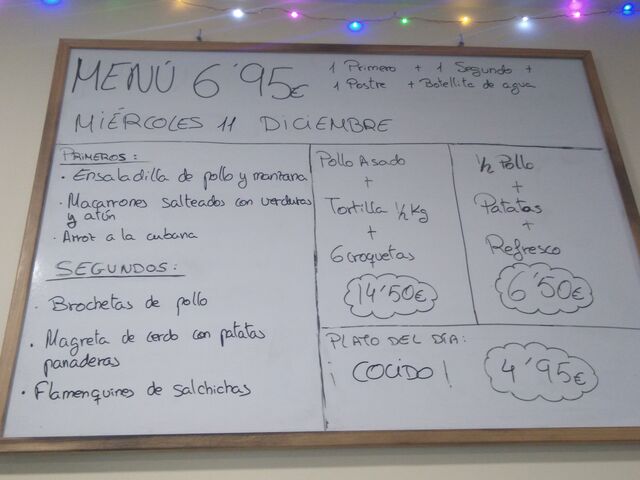 MENÚ 6'95€
1 Primero + 1 Segundo +
1 Postre + Botellita de agua
MIÉRCOLES 11 DICIEMBRE
PRIMEROS:
· Ensaladilla de pollo y manzana
· Macarrones salteados con verduras
y atún
· Arroz a la cubana
SEGUNDOS:
· Brochetas de pollo
· Magreta de cerdo con patatas
panaderas
· Flamenquines de salchichas
Pollo Asado
+
Tortilla 1/2 Kg
+
6 croquetas
14'50€
1/2 Pollo
+
Patatas
+
Refresco
6'50€
PLATO DEL DÍA:
¡COCIDO!
4'95€